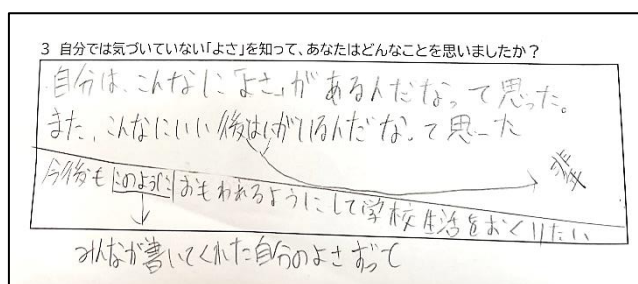 3 自分では気づいていない「よさ」を知って、あなたはどんなことを思いましたか？
自分は、こんなに「よさ」があるんだなって思った。
また、こんなにいい後はいがいるんだなって思った
輩
今後もこのようにおもわれるようにして学校生活をおくりたい
みんなが書いてくれた自分のよさ